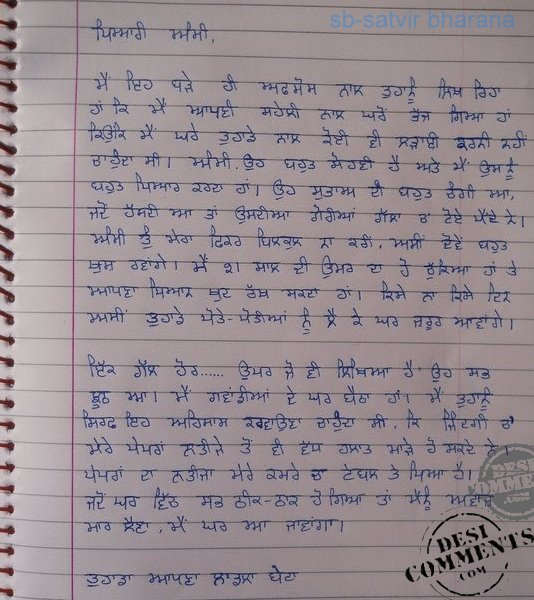 sb-satvir bharana
ਪਿਆਰੀ ਅੰਮੀ,
ਮੈਂ ਇਹ ਬੜੇ ਹੀ ਅਫਸੋਸ ਨਾਲ ਤੁਹਾਨੂੰ ਲਿਖ ਰਿਹਾ
ਹਾਂ ਕਿ ਮੈਂ ਆਪਣੀ ਸਹੇਲੀ ਨਾਲ ਘਰੋਂ ਭੱਜ ਗਿਆ ਹਾਂ
ਕਿਉਂਕਿ ਮੈਂ ਘਰੇ ਤੁਹਾਡੇ ਨਾਲ ਕੋਈ ਵੀ ਲੜਾਈ ਕਰਨੀ ਨਹੀਂ
ਚਾਹੁੰਦਾ ਸੀ। ਅੰਮੀ, ਉਹ ਬਹੁਤ ਸੋਹਣੀ ਹੈ ਅਤੇ ਮੈਂ ਉਸਨੂੰ
ਬਹੁਤ ਪਿਆਰ ਕਰਦਾ ਹਾਂ। ਉਹ ਸੁਭਾਅ ਦੀ ਬਹੁਤ ਚੰਗੀ ਆ,
ਜਦੋਂ ਹੱਸਦੀ ਆ ਤਾਂ ਉਸਦੀਆ ਗੋਰੀਆਂ ਗੱਲਾ ਚ ਟੋਏ ਪੈਂਦੇ ਨੇ।
ਅੰਮੀ ਤੂੰ ਮੇਰਾ ਫਿਕਰ ਬਿਲਕੁਲ ਨਾ ਕਰੀਂ, ਅਸੀਂ ਦੋਵੇਂ ਬਹੁਤ
ਖੁਸ਼ ਰਵਾਂਗੇ। ਮੈਂ 21 ਸਾਲ ਦੀ ਉਮਰ ਦਾ ਹੋ ਚੁੱਕਿਆ ਹਾਂ ਤੇ
ਆਪਣਾ ਖਿਆਲ ਖੁਦ ਰੱਖ ਸਕਦਾ ਹਾਂ। ਕਿਸੇ ਨਾ ਕਿਸੇ ਦਿਨ
ਅਸੀਂ ਤੁਹਾਡੇ ਪੋਤੇ-ਪੋਤੀਆਂ ਨੂੰ ਲੈ ਕੇ ਘਰ ਜ਼ਰੂਰ ਆਵਾਂਗੇ।
ਇੱਕ ਗੱਲ ਹੋਰ...... ਉਪਰ ਜੋ ਵੀ ਲਿਖਿਆ ਹੈ ਉਹ ਸਭ
ਝੂਠ ਆ। ਮੈਂ ਗਵਾਂਢੀਆਂ ਦੇ ਘਰ ਬੈਠਾ ਹਾਂ। ਮੈਂ ਤੁਹਾਨੂੰ
ਸਿਰਫ ਇਹ ਅਹਿਸਾਸ ਕਰਵਾਉਣਾ ਚਾਹੁੰਦਾ ਸੀ, ਕਿ ਜ਼ਿੰਦਗੀ ਚ'
ਮੇਰੇ ਪੇਪਰਾਂ ਨਤੀਜੇ ਤੋਂ ਵੀ ਵੱਧ ਹਲਾਤ ਮਾੜੇ ਹੋ ਸਕਦੇ ਨੇ।
ਪੇਪਰਾਂ ਦਾ ਨਤੀਜਾ ਮੇਰੇ ਕਮਰੇ ਚ' ਟੇਬਲ ਤੇ ਪਿਆ ਹੈ।
ਜਦੋਂ ਘਰ ਵਿੱਚ ਸਭ ਠੀਕ-ਠਾਕ ਹੋ ਗਿਆ ਤਾਂ ਮੈਨੂੰ ਅਵਾਜ਼
ਮਾਰ ਲੈਣਾ, ਮੈਂ ਘਰ ਆ ਜਾਵਾਂਗਾ।
ਤੁਹਾਡਾ ਆਪਣਾ ਲਾਡਲਾ ਬੇਟਾ
DESI
COMMENTS
.COM
DESI
COMMENTS
.COM